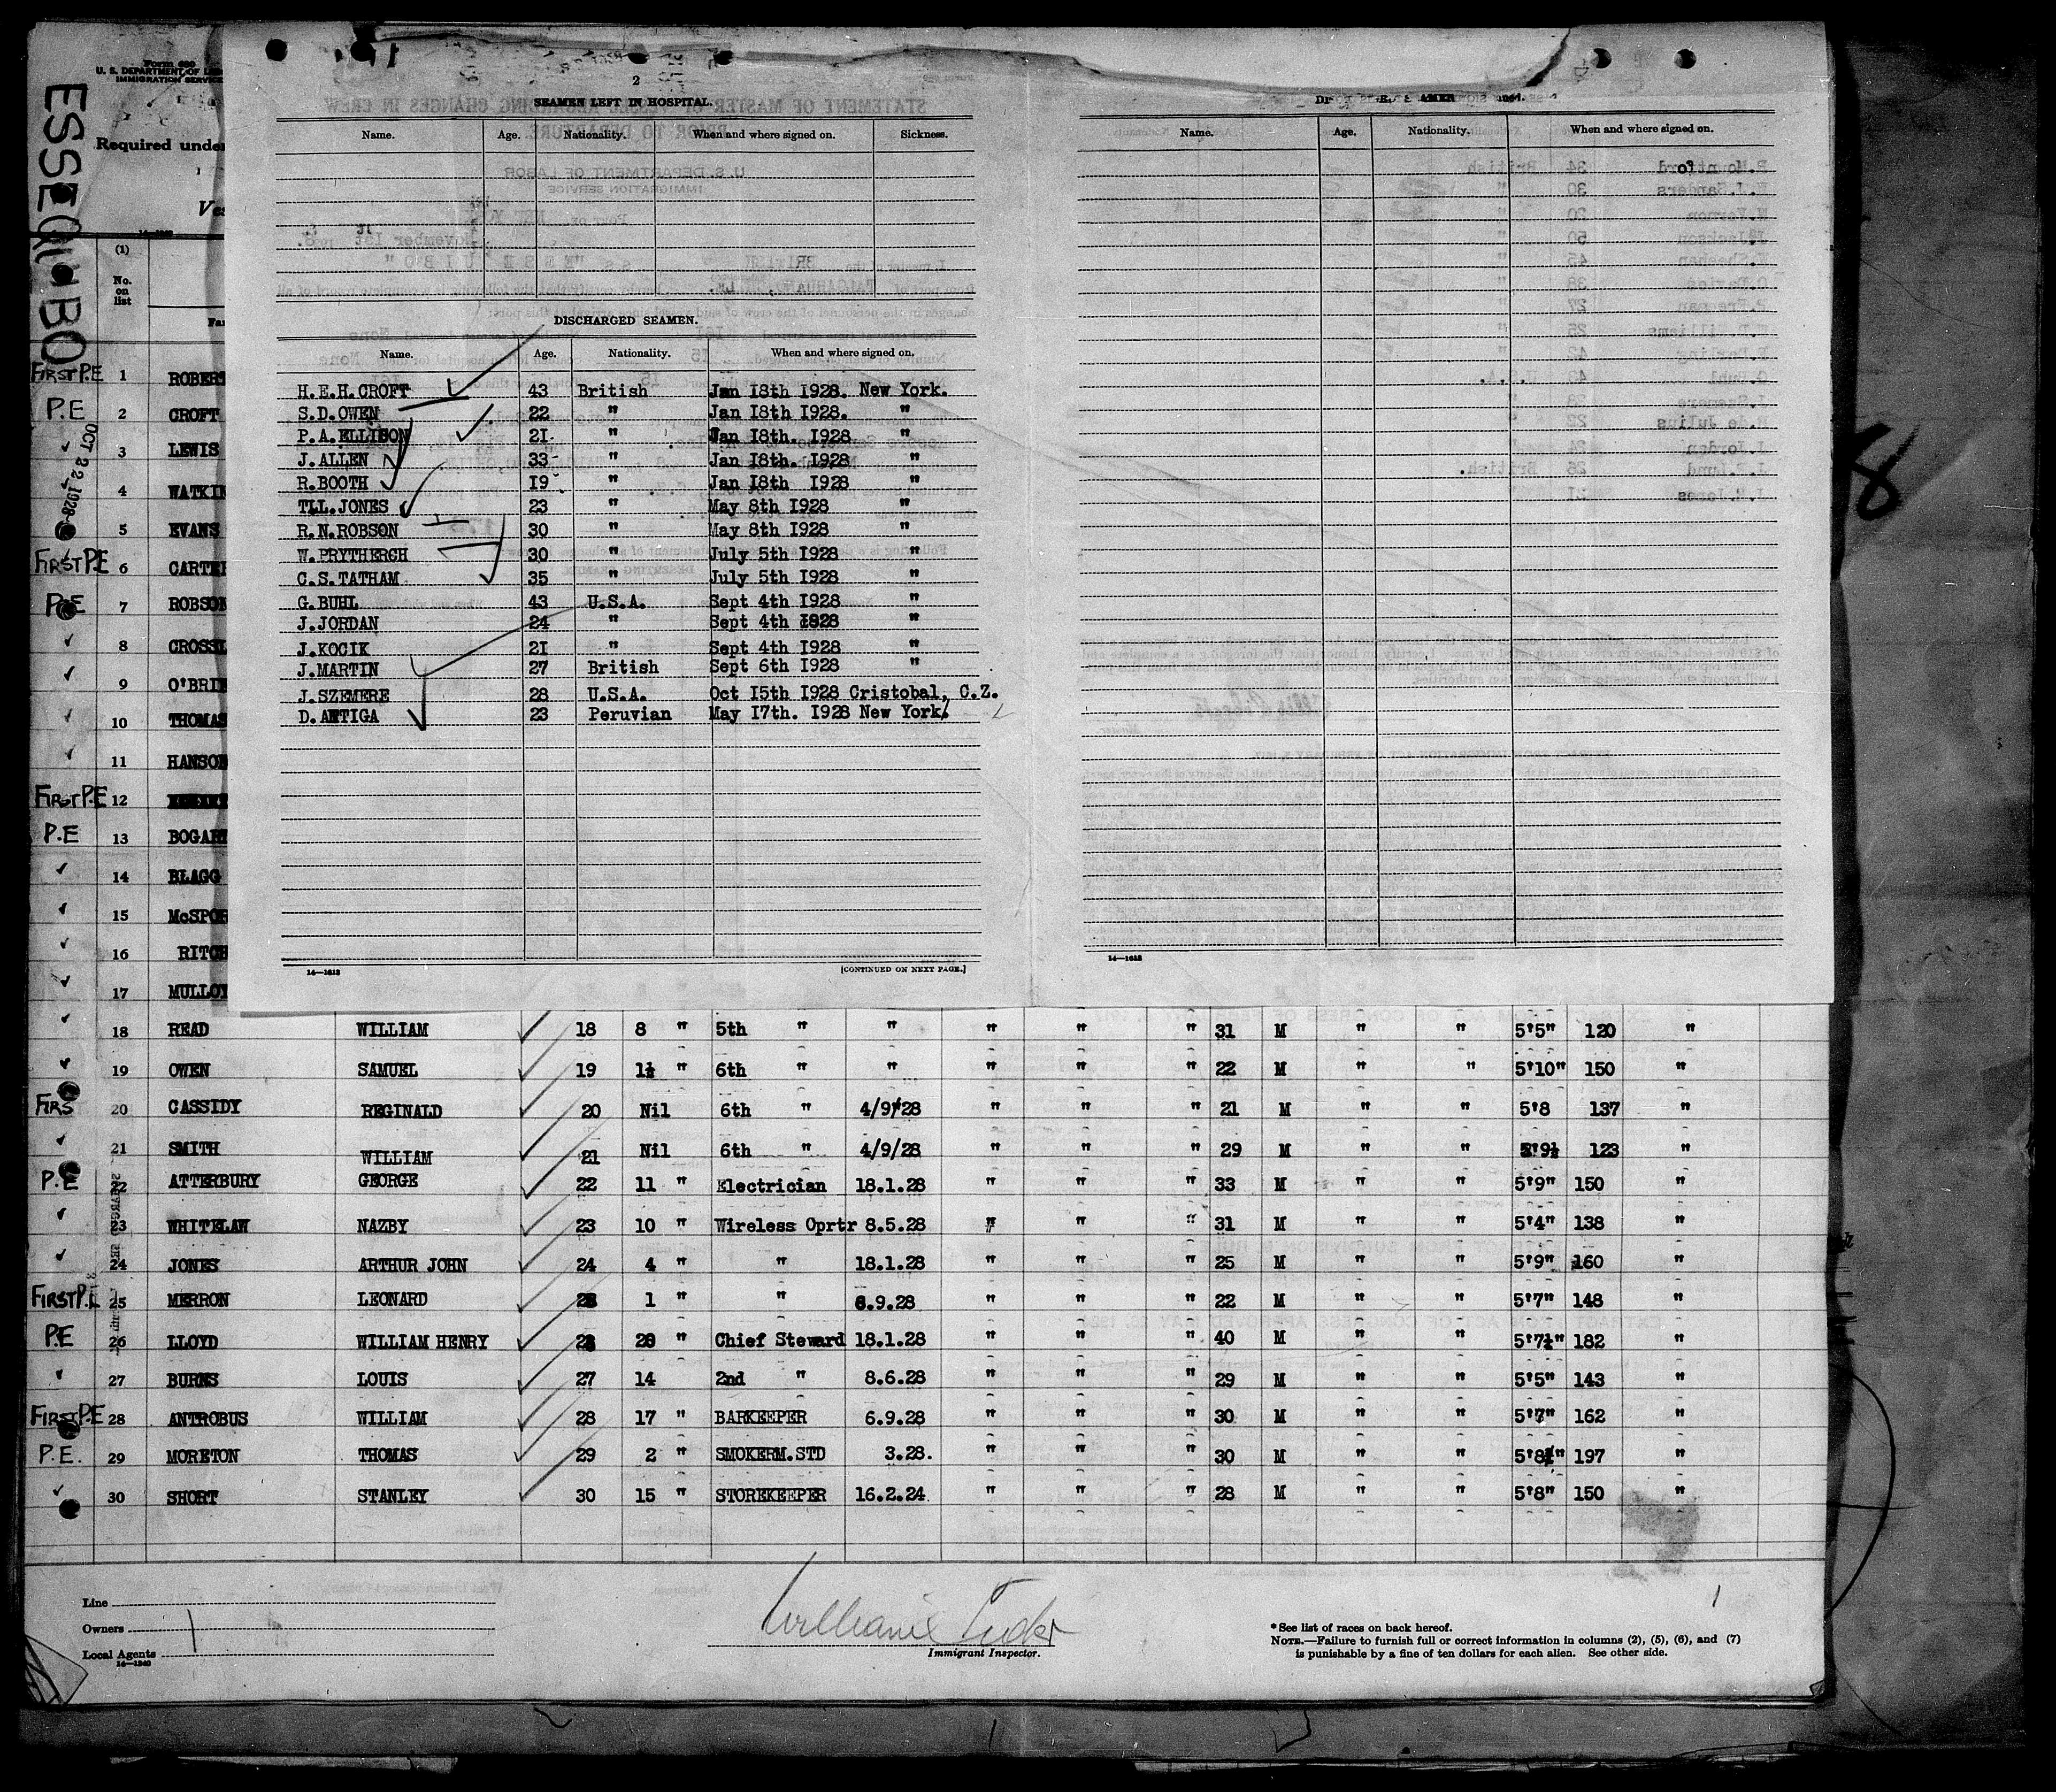 ESSEQUIBO
Form 680
U. S. DEPARTMENT OF
IMMIGRATION SERVICE
Required unde
Ves
(1)
No. on list
2
SEAMEN LEFT IN HOSPITAL.
Name. Age. Nationality. When and where signed on. Sickness.
Name. Age. Nationality. When and where signed on.
DISCHARGED SEAMEN.
Name. Age. Nationality. When and where signed on.
H.E.H.CROFT 43 British Jan 18th 1928. New York.
S.D.OWEN 22 " Jan 18th 1928. "
P.A.ELLISON 21 " Jan 18th. 1928 "
J.ALLEN 33 " Jan 18th. 1928 "
R.BOOTH 19 " Jan 18th 1928 "
T.L.JONES 23 " May 8th 1928 "
R.N.ROBSON 30 " May 8th 1928 "
W.PRYTHERCH 30 " July 5th 1928 "
C.S.TATHAM 35 " July 5th 1928 "
G.BUHL 43 U.S.A. Sept 4th 1928 "
J.JORDAN 24 " Sept 4th 1928 "
J.KOCIK 21 " Sept 4th 1928 "
J.MARTIN 27 British Sept 6th 1928 "
J.SZEMERE 28 U.S.A. Oct 15th 1928 Cristobal, C.Z.
D.ARTIGA 23 Peruvian May 17th. 1928 New York.
14—1613 [CONTINUED ON NEXT PAGE.]
14—1613
FIRST P.E 1 ROBERT
P.E 2 CROFT
OCT 22 1928
3 LEWIS
4 WATKIN
5 EVANS
FIRST P.E 6 CARTER
P.E 7 ROBSON
8 CROSSL
9 O'BRIE
10 THOMAS
11 HANSON
FIRST P.E 12
P.E 13 BOGART
14 BLAGG
15 McSPOR
16 RITCH
17 MULLOY
18 READ WILLIAM 18 8 " 5th " " " " " 31 M " " 5'5" 120 "
19 OWEN SAMUEL 19 1½ " 6th " " " " " 22 M " " 5'10" 150 "
FIRS 20 CASSIDY REGINALD 20 Nil 6th " 4/9/28 " " " 21 M " " 5'8 137 "
21 SMITH WILLIAM 21 Nil 6th " 4/9/28 " " " 29 M " " 5'9½ 123 "
P.E 22 ATTERBURY GEORGE 22 11 " Electrician 18.1.28 " " " 33 M " " 5'9" 150 "
23 WHITELAW NAZBY 23 10 " Wireless Oprtr 8.5.28 " " " 31 M " " 5'4" 138 "
24 JONES ARTHUR JOHN 24 4 " " 18.1.28 " " " 25 M " " 5'9" 160 "
FIRST P.E 25 MERRON LEONARD 25 1 " " 6.9.28 " " " 22 M " " 5'7" 148 "
P.E 26 LLOYD WILLIAM HENRY 26 20 " Chief Steward 18.1.28 " " " 40 M " " 5'7½" 182 "
27 BURNS LOUIS 27 14 2nd " 8.6.28 " " " 29 M " " 5'5" 143 "
FIRST P.E 28 ANTROBUS WILLIAM 28 17 " BARKEEPER 6.9.28 " " " 30 M " " 5'7" 162 "
P.E. 29 MORETON THOMAS 29 2 " SMOKERM.STD 3.28. " " " 30 M " " 5'8½" 197 "
30 SHORT STANLEY 30 15 " STOREKEEPER 16.2.24 " " " 28 M " " 5'8" 150 "
Line
Owners
Local Agents
14—1240
Immigrant Inspector.
* See list of races on back hereof.
NOTE.—Failure to furnish full or correct information in columns (2), (5), (6), and (7)
is punishable by a fine of ten dollars for each alien. See other side.